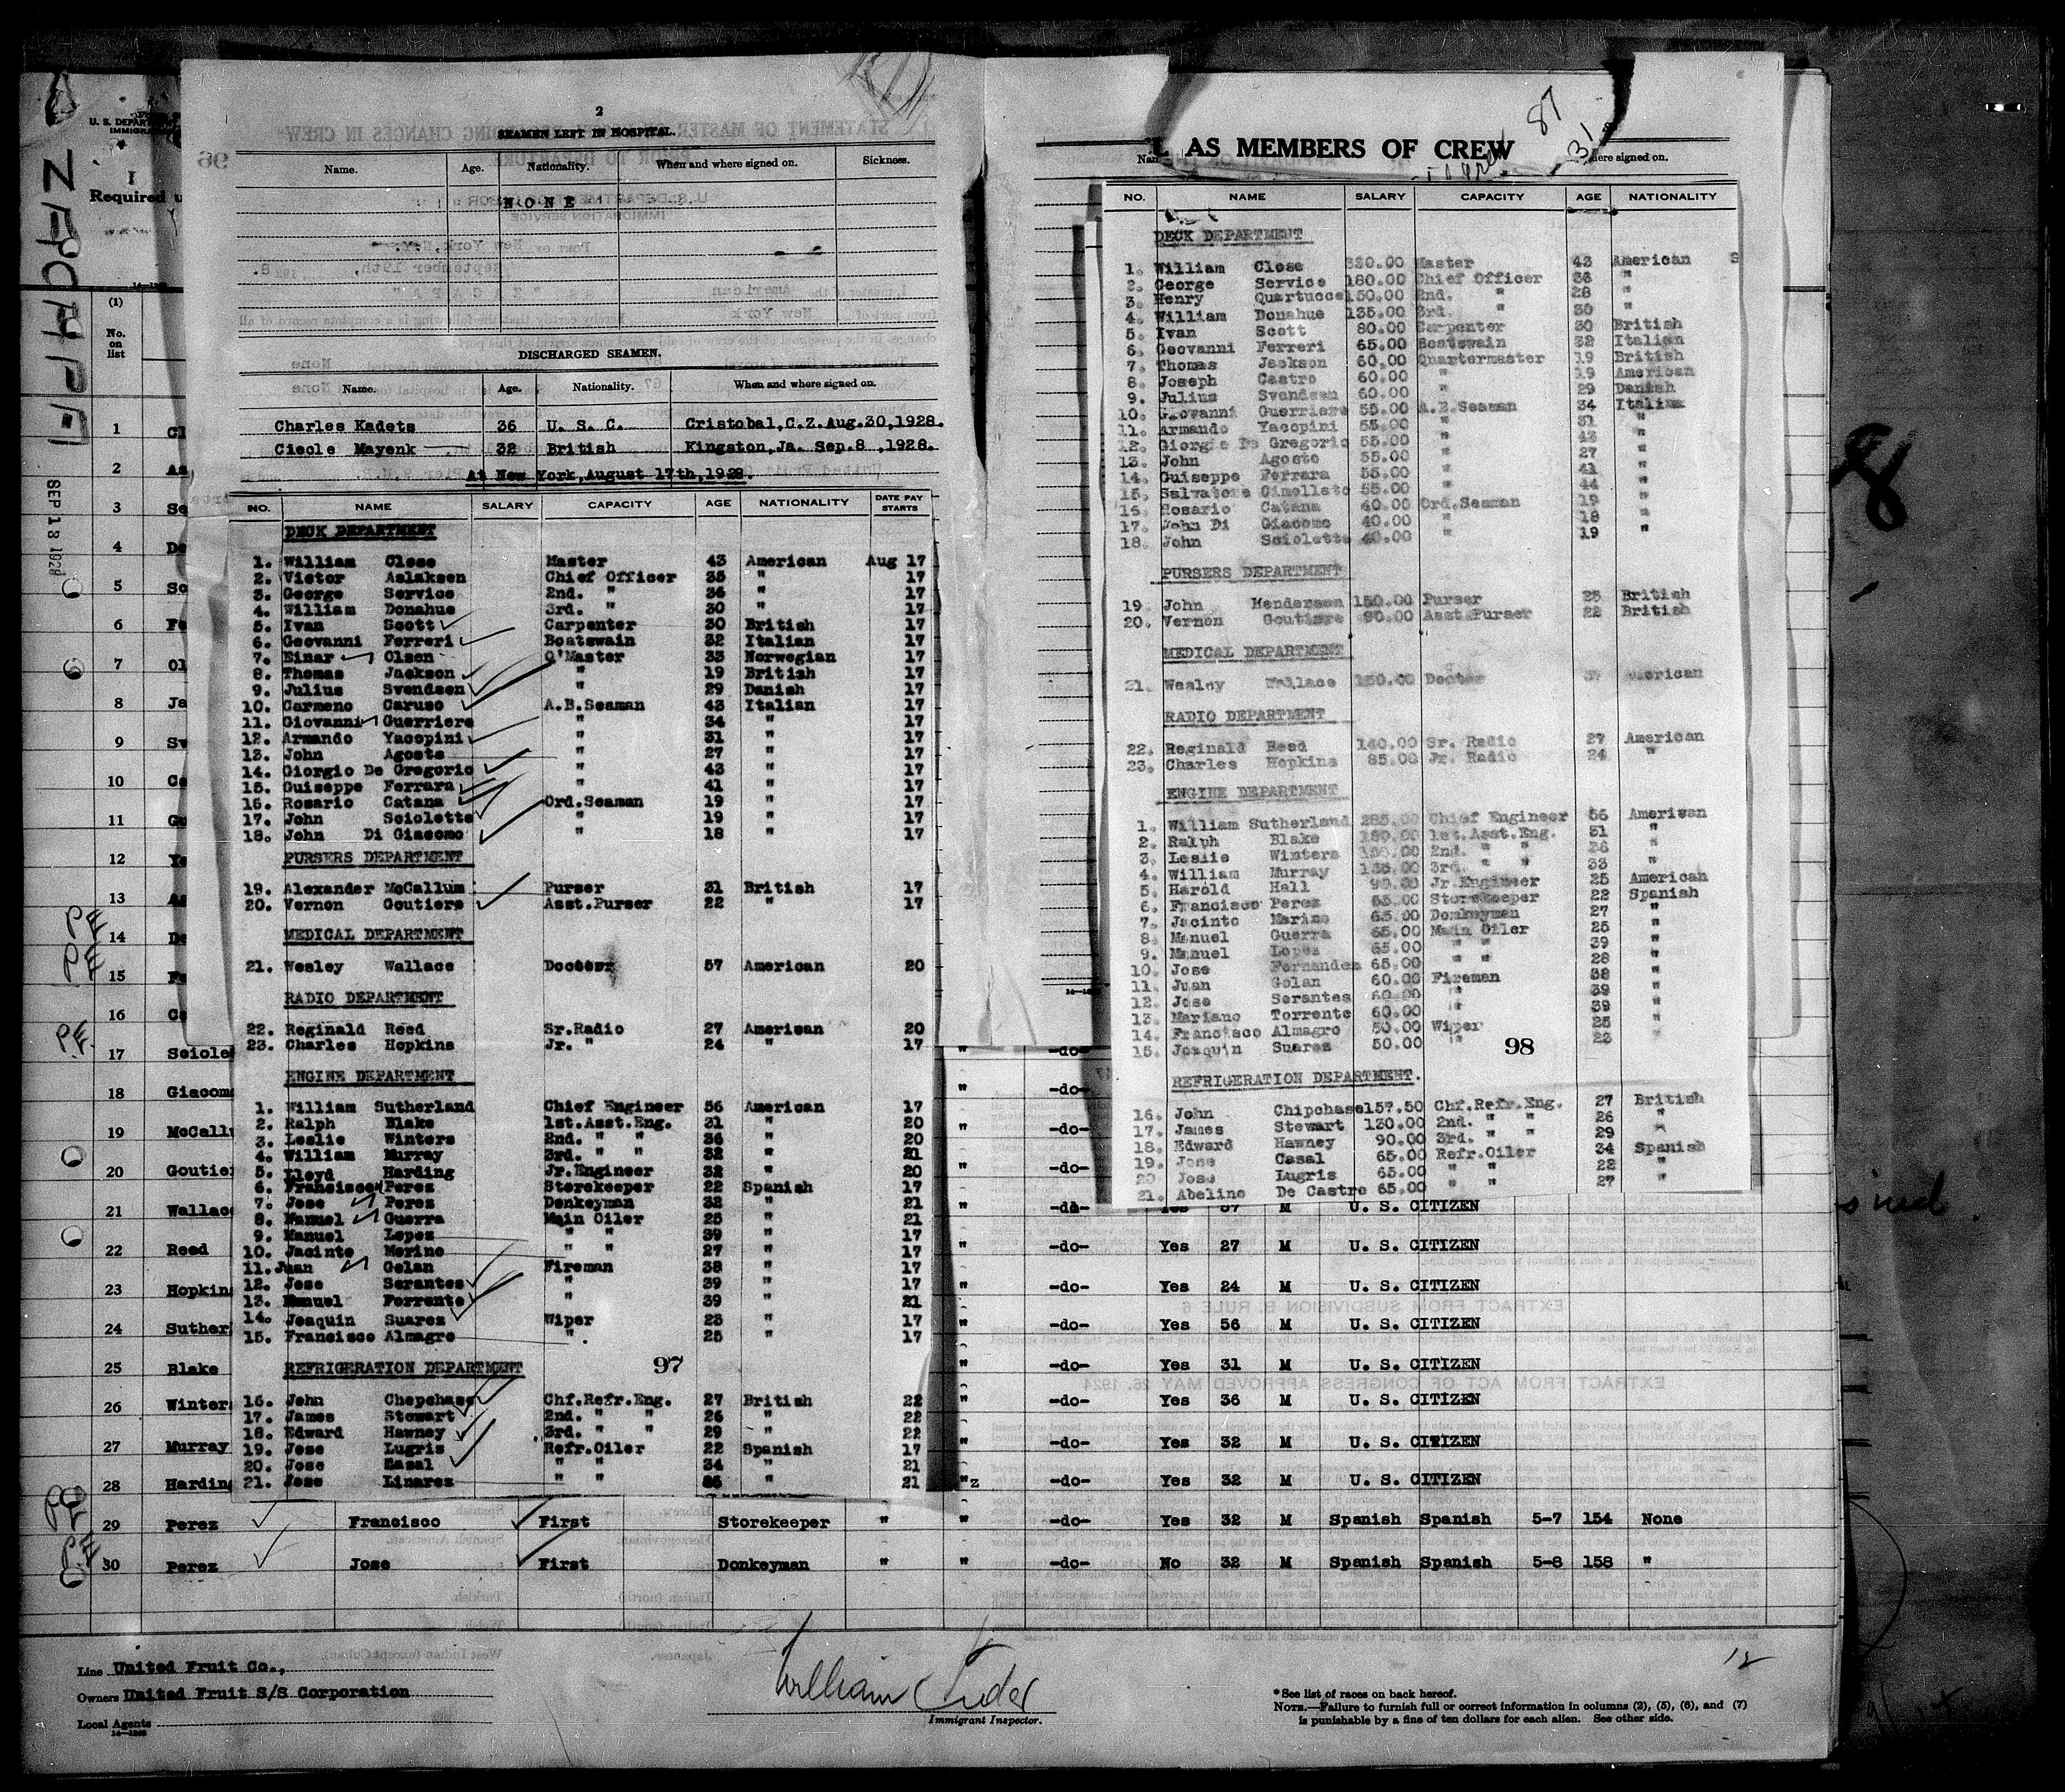 2
SEAMEN LEFT IN HOSPITAL.
Name. Age. Nationality. When and where signed on. Sickness.
NONE
DISCHARGED SEAMEN.
Name. Age. Nationality. When and where signed on.
Charles Kadets 36 U. S. C. Cristobal, C.Z. Aug.30,1928.
Cicole Mayenk 32 British Kingston, Ja. Sep.8 ,1928.
At New York, August 17th, 1928.
NO. NAME SALARY CAPACITY AGE NATIONALITY DATE PAY STARTS
DECK DEPARTMENT
1. William Close Master 43 American Aug 17
2. Victor Aslaksen Chief Officer 35 " 17
3. George Service 2nd. " 36 " 17
4. William Donahue 3rd. " 30 " 17
5. Ivan Scott Carpenter 30 British 17
6. Geovanni Ferreri Boatswain 32 Italian 17
7. Einar Olsen Q'Master 33 Norwegian 17
8. Thomas Jackson " 19 British 17
9. Julius Svendsen " 29 Danish 17
10. Carmeno Caruso A.B.Seaman 43 Italian 17
11. Giovanni Guerriere " 34 " 17
12. Armando Yacopini " 31 " 17
13. John Agosta " 27 " 17
14. Giorgio De Gregorio " 43 " 17
15. Guiseppe Ferrara " 41 " 17
16. Rosario Catana Ord.Seaman 19 " 17
17. John Sciolette " 19 " 17
18. John Di Giacomo " 18 " 17
PURSERS DEPARTMENT
19. Alexander McCallum Purser 31 British 17
20. Vernon Goutiere Asst.Purser 22 " 17
MEDICAL DEPARTMENT
21. Wesley Wallace Doctor 57 American 20
RADIO DEPARTMENT
22. Reginald Reed Sr.Radio 27 American 20
23. Charles Hopkins Jr. " 24 " 17
ENGINE DEPARTMENT
1. William Sutherland Chief Engineer 56 American 17
2. Ralph Blake 1st.Asst.Eng. 31 " 20
3. Leslie Winters 2nd. " " 36 " 20
4. William Murray 3rd. " " 32 " 21
5. Lloyd Harding Jr.Engineer 32 " 20
6. Francisco Perez Storekeeper 22 Spanish 17
7. Jose Perez Donkeyman 32 " 21
8. Manuel Guerra Main Oiler 25 " 21
9. Manuel Lopez " " 39 " 17
10. Jacinto Merino " " 27 " 17
11. Juan Golan Fireman 38 " 17
12. Jose Serantes " 39 " 17
13. Manuel Forrente " 39 " 21
14. Joaquin Suarez Wiper 23 " 17
15. Francisco Almagro " 25 " 17
REFRIGERATION DEPARTMENT 97
16. John Chepchase Chf.Refr.Eng. 27 British 22
17. James Stewart 2nd. " " 26 " 22
18. Edward Hawney 3rd. " " 29 " 22
19. Jose Lugris Refr.Oiler 22 Spanish 17
20. Jose Casal " " 34 " 21
21. Jose Linarez " " " 21
87
31
L AS MEMBERS OF CREW
here signed on.
NO. NAME SALARY CAPACITY AGE NATIONALITY
DECK DEPARTMENT
1. William Close Master 43 American S
2. George Service 180.00 Chief Officer 36 "
3. Henry Quartucce 150.00 2nd. " 28 "
4. William Donahue 135.00 3rd. " 30 "
5. Ivan Scott 80.00 Carpenter 30 British
6. Geovanni Ferreri 65.00 Boatswain 32 Italian
7. Thomas Jackson 60.00 Quartermaster 19 British
8. Joseph Castro 60.00 " 19 American
9. Julius Svendsen 60.00 " 29 Danish
10. Giovanni Guerriere 55.00 A.B.Seaman 34 Italian
11. Armando Yacopini 55.00 " 31 "
12. Giorgio De Gregorio 55.00 " 43 "
13. John Agosto 55.00 " 27 "
14. Guiseppe Ferrara 55.00 " 41 "
15. Salvatore Cimellato 55.00 " 44 "
16. Rosario Catana 40.00 Ord.Seaman 19 "
17. John Di Giacomo 40.00 " 18 "
18. John Sciolette 40.00 " 19 "
PURSERS DEPARTMENT
19. John Henderson 150.00 Purser 25 British
20. Vernon Goutiere 90.00 Asst.Purser 22 British
MEDICAL DEPARTMENT
21. Wesley Wallace 150.00 Doctor 57 American
RADIO DEPARTMENT
22. Reginald Reed 140.00 Sr. Radio 27 American
23. Charles Hopkins 85.00 Jr. Radio 24 "
ENGINE DEPARTMENT
1. William Sutherland 285.00 Chief Engineer 56 American
2. Ralph Blake 1st.Asst.Eng. 31 "
3. Leslie Winters 2nd. " " 36 "
4. William Murray 3rd. " " 33 "
5. Harold Hall 90.00 Jr Engineer 25 American
6. Francisco Perez Storekeeper 22 Spanish
7. Jacinto Marino 65.00 Donkeyman 27 "
8. Manuel Guerra 65.00 Main Oiler 25 "
9. Manuel Lopez 65.00 " " 39 "
10. Jose Fernandez 65.00 " " 28 "
11. Juan Golan 60.00 Fireman 38 "
12. Jose Serantes 60.00 " 39 "
13. Mariano Torrente 60.00 " 39 "
14. Francisco Almagro 50.00 Wiper 25 "
15. Joaquin Suarez 50.00 " 23 "
98
REFRIGERATION DEPARTMENT.
16. John Chipchase 157.50 Chf.Refr.Eng. 27 British
17. James Stewart 130.00 2nd. " " 26 "
18. Edward Hawney 90.00 3rd. " " 29 "
19. Jose Casal 65.00 Refr.Oiler 34 Spanish
20 Jose Lugris 65.00 " " 22 "
21. Abelino De Castro 65.00 " " 27 "
ZACAPA
SEP 18 1928
U. S. DEPAR
IMMIGRA
Required u
(1)
No. on list
1 Cl
2 As
3 Se
4 Do
5 Sc
6 Fe
7 Ol
8 Ja
9 Sv
10 Ca
11 Gu
12 Ya
13 Ag
PE 14 De
PE 15 Fe
16 Ca
P.E. 17 Sciole " -do-
18 Giacom " -do-
19 McCall " -do-
20 Goutie " -do-
21 Wallac " -do- Yes 57 M U. S. CITIZEN
22 Reed " -do- Yes 27 M U. S. CITIZEN
23 Hopkin " -do- Yes 24 M U. S. CITIZEN
24 Suther " -do- Yes 56 M U. S. CITIZEN
25 Blake " -do- Yes 31 M U. S. CITIZEN
26 Winter " -do- Yes 36 M U. S. CITIZEN
27 Murray " -do- Yes 32 M U. S. CITIZEN
28 Harding "z -do- Yes 32 M U. S. CITIZEN
29 Perez Francisco First Storekeeper " " -do- Yes 32 M Spanish Spanish 5-7 154 None
30 Perez Jose First Donkeyman " " -do- No 32 M Spanish Spanish 5-8 158 "
Line United Fruit Co.,
Owners United Fruit S/S Corporation
Local Agents
14-1249
Immigrant Inspector.
12
* See list of races on back hereof.
NOTE.—Failure to furnish full or correct information in columns (2), (5), (6), and (7)
is punishable by a fine of ten dollars for each alien. See other side.
8